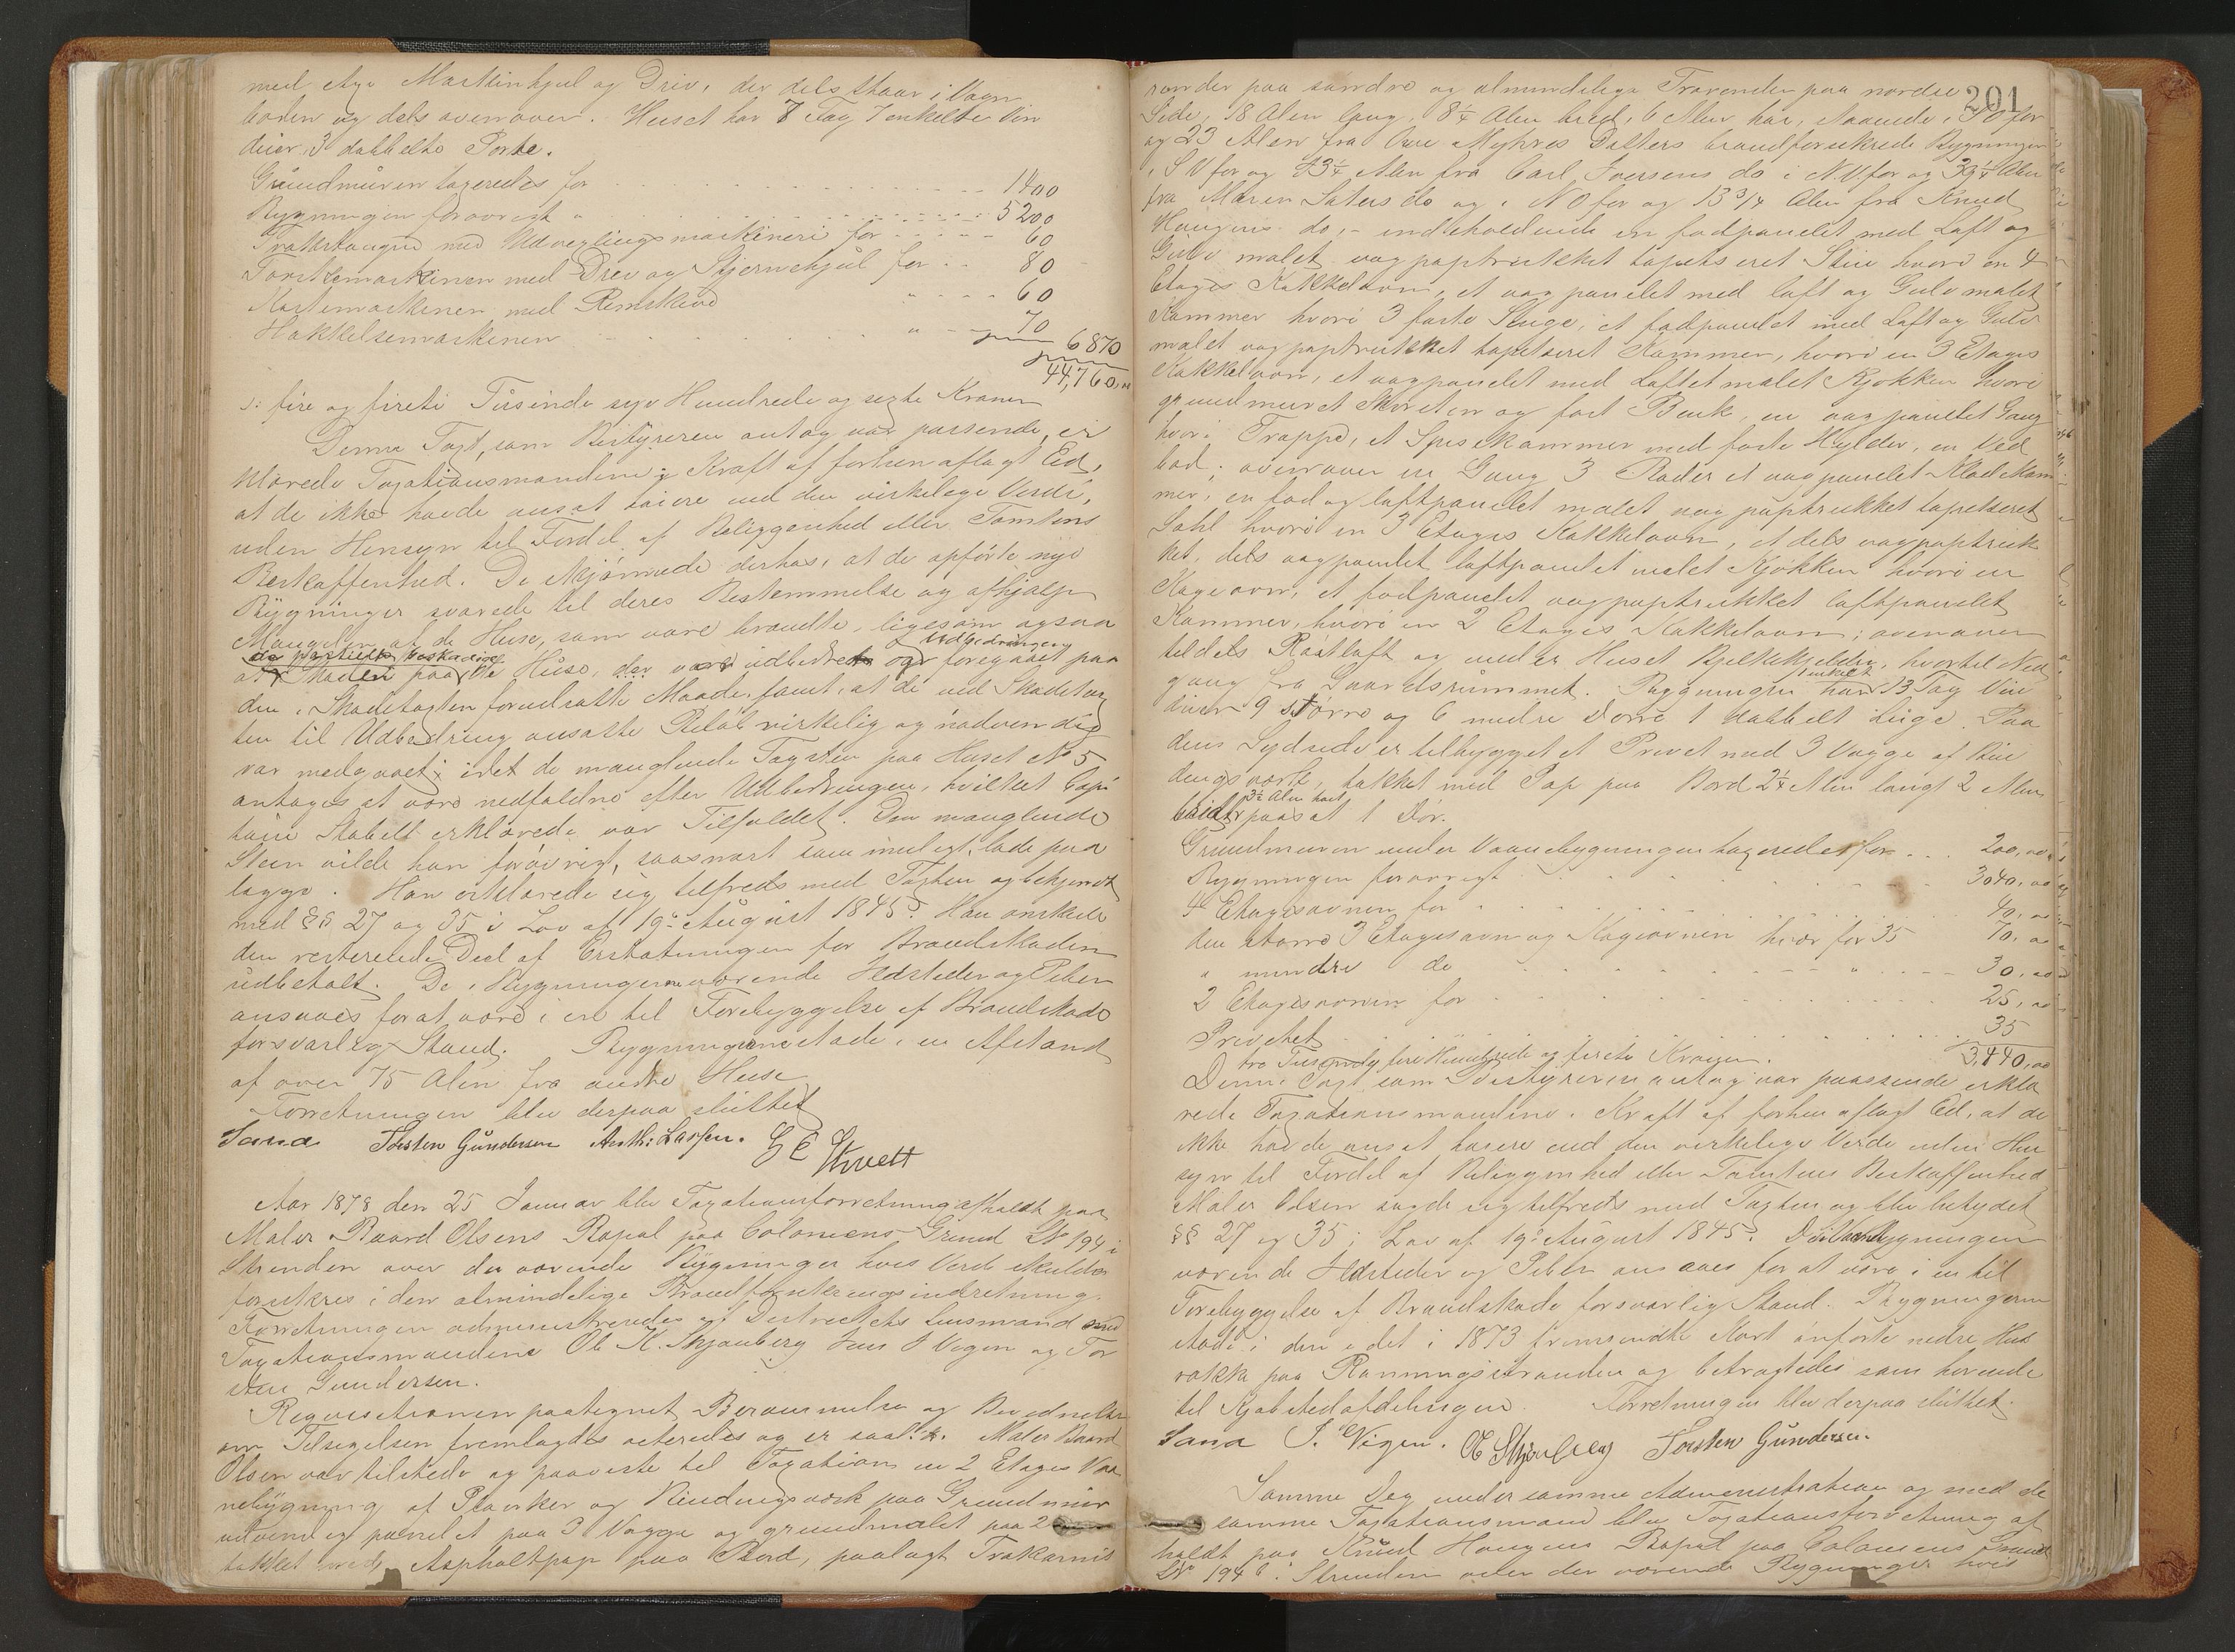 med dye Maskinhjul og Driv, der dels staar i Vogn
boden og dels ovenover. Huset har 8 Fag 7 enkelte Vin
duer, 3 dobbelte Porte.
Grundmuren taxeredes for 1400
Bygningen forøvrigt " 5200
med Udvexlingsmaskineri for 60
Tærskemaskinen med Drev og Stjernehjul for 80
Kastemaskinen med Remskive " 60
Hakkelsemaskinen " 70
6870
44,760,00
ɔ: fire og fireti Tusinde syv Hundrede og sexti Kroner
Denne Taxt, som Bestyreren antog var passende, er
klærede Taxationsmændene i Kraft af forhen aflagt Ed,
at de ikke havde ansat høiere end den virkelige Verdi,
uden Hensyn til Fordel af Beliggenhed eller Tomtens
Beskaffenhed. De skjønnede derhos, at de opførte nye
Bygninger svarede til deres Bestemmelse og afhjalp
Mangelen af de Huse, som vare brændte, ligesom ogsaa
de partielt beskadige Udbedringen
at Skaden paa de Huse, der var udbedret og foregaaet paa
den i Skadetaxten forudsatte Maade, samt, at de ved Skadetax
ten til Udbedring ansatte Beløb virkelig og nødvendig
var medgaaet; idet de manglende Tagsten paa Huset No 5
antages at være nedfaldne efter Udbedringen, hvilket Capi
tain Stabell erklærede var Tilfældet. Den manglende
Steen vilde han forøvrigt, saasnart som muligt, lade paa
lægge. Han erklærede sig tilfreds med Taxten og bekjendt
med §§ 27 og 35 i Lov af 19de August 1845. Han ønskede
den resterende Deel af Erstatningen for Brandskaden
udbetalt. De i Bygningerne værende Ildsteder og Piber
ansaaes for at være i en til Forebyggelse af Brandskade
forsvarlig Stand. Bygningerne stode i en Afstand
af over 75 Alen fra andre Huse
Forretningen blev derpaa sluttet
Sana Torsten Gundersen Anth: Larsen. G E Kvett
Aar 1878 den 25 Januar blev Taxationsforretning afholdt paa
Maler Baard Olsens Bopæl paa Coloniens Grund No 194 i
Stranden over de værende Bygninger hvis Verdi skulde
forsikres i den almindelige Brandforsikringsindretning.
Forretningen administreredes af Distrectets Lensmand med
Taxationsmændene Ole K. Skjanberg Jens J Vigen og Tor
sten Gundersen.
Reqvisitionen paategnet Berammelse og Bevidnelse
om Tilsigelsen fremlagdes acteredes og er saal. Maler Baard
Olsen var tilstede og paaviste til Taxation en 2 Etages Vaa
nebygning af Planker og Bindingsværk paa Grundmur
udvendig panelet paa 3 Vægge og grundmalet paa 2
tækket med Asphaltpap paa Bord, paalagt
201
render paa søndre og almindelige Travender paa nordre
Side, 18 Alen lang, 8¼ Alen bred, 6 Alen høi, staaende i SO for
og 23 Alen fra Ane Myhres Datters brandforsikrede Bygninger
i SV for og 13¼ Alen fra Carl Iversens do i NV for og 39¼ Alen
fra Maren Sæters do og i NO for og 13¾ Alen fra Knud
Haugens do, - indeholdende en fodpanelet med Loft og
Gulv malet vægpaptrukket tapetseret Stue hvori en 4
Etages Kakkelovn, et vægpanelet med Loft og Gulv malet
Kammer hvori 3 faste Senge, et fodpanelet med Loft og Gulv
malet vægpaptrukket tapetseret Kammer, hvori en 3 Etages
Kakkelovn, et vægpanelet med Loftet malet Kjøkken hvori
grundmuret Skorsten og fast Bænk, en vægpanelet Gang
hvori Trappe, et Spisekammer med faste Hylder, en Ved
bod; ovenover en Gang 3 Boder et vægpanelet Klædekam
mer, en fod og loftpanelet malet vægpaptrukket tapetseret
Sahl hvori en 3 Etages Kakkelovn, et dels vægpaptruk
ket, dels vægpanelet loftpanelet malet Kjøkken hvori en
Kageovn, et fodpanelet vægpaptrukket loftpanelet
Kammer, hvori en 2 Etages Kakkelovn; ovenover
tildels Raaloft og under Huset Bjelkekjelder, hvortil Ned
enkelt
gang fra Gaardsrummet. Bygningen har 13 Fag Vin
duer 9 større og 6 mindre Døre 1 dobbelt Luge. Paa
dens Sydside er tilbygget et Privet med 3 Vægge af Bin
dingsværk, tækket med Pap paa Bord 2¼ Alen langt 2 Alen
3½ Alen høit
bredt paasat 1 Dør.
Grundmuren under Vaanebygningen taxeredes for 200,00
Bygningen forøvrigt 3040,00
4 Etagesovnen for 40,00
den større 3 Etagesovn og Kageovnen hver for 35 70,00
" mindre do " 30,00
2 Etagesovnen for 25,00
Privetet 35
3,440,00
tre Tusende fire Hundrede og firete Kroner.
Denne Taxt som Bestyreren antog var passende erklæ
rede Taxationsmændene i Kraft af forhen aflagt Ed, at de
ikke havde ansat høiere end den virkelige Verdi uden Hen
syn til Fordel af Beliggenhed eller Tomtens Beskaffenhed
Maler Olsen sagde sig tilfreds med Taxten og blev betydet
§§ 27 og 35 i Lov af 19de August 1845. De i Bygningen
værende Ildsteder og Piber ansaaes for at være i en til
Forebyggelse af Brandskade forsvarlig Stand. Bygningerne
stode i den i det i 1873 fremsendte Kart anførte nedre Hus
række paa Rønningstranden og betragtedes som hørende
til Kjøbstedafdelingen. Forretningen blev derpaa sluttet.
Sana J. Vigen. O K Skjanberg Torsten Gundersen.
Samme Dag under samme Administration og med de
samme Taxationsmænd blev Taxationsforretning af
holdt paa Knud Haugens Bopæl paa Coloniens Grund
No 194 i Stranden over der værende Bygninger hvis